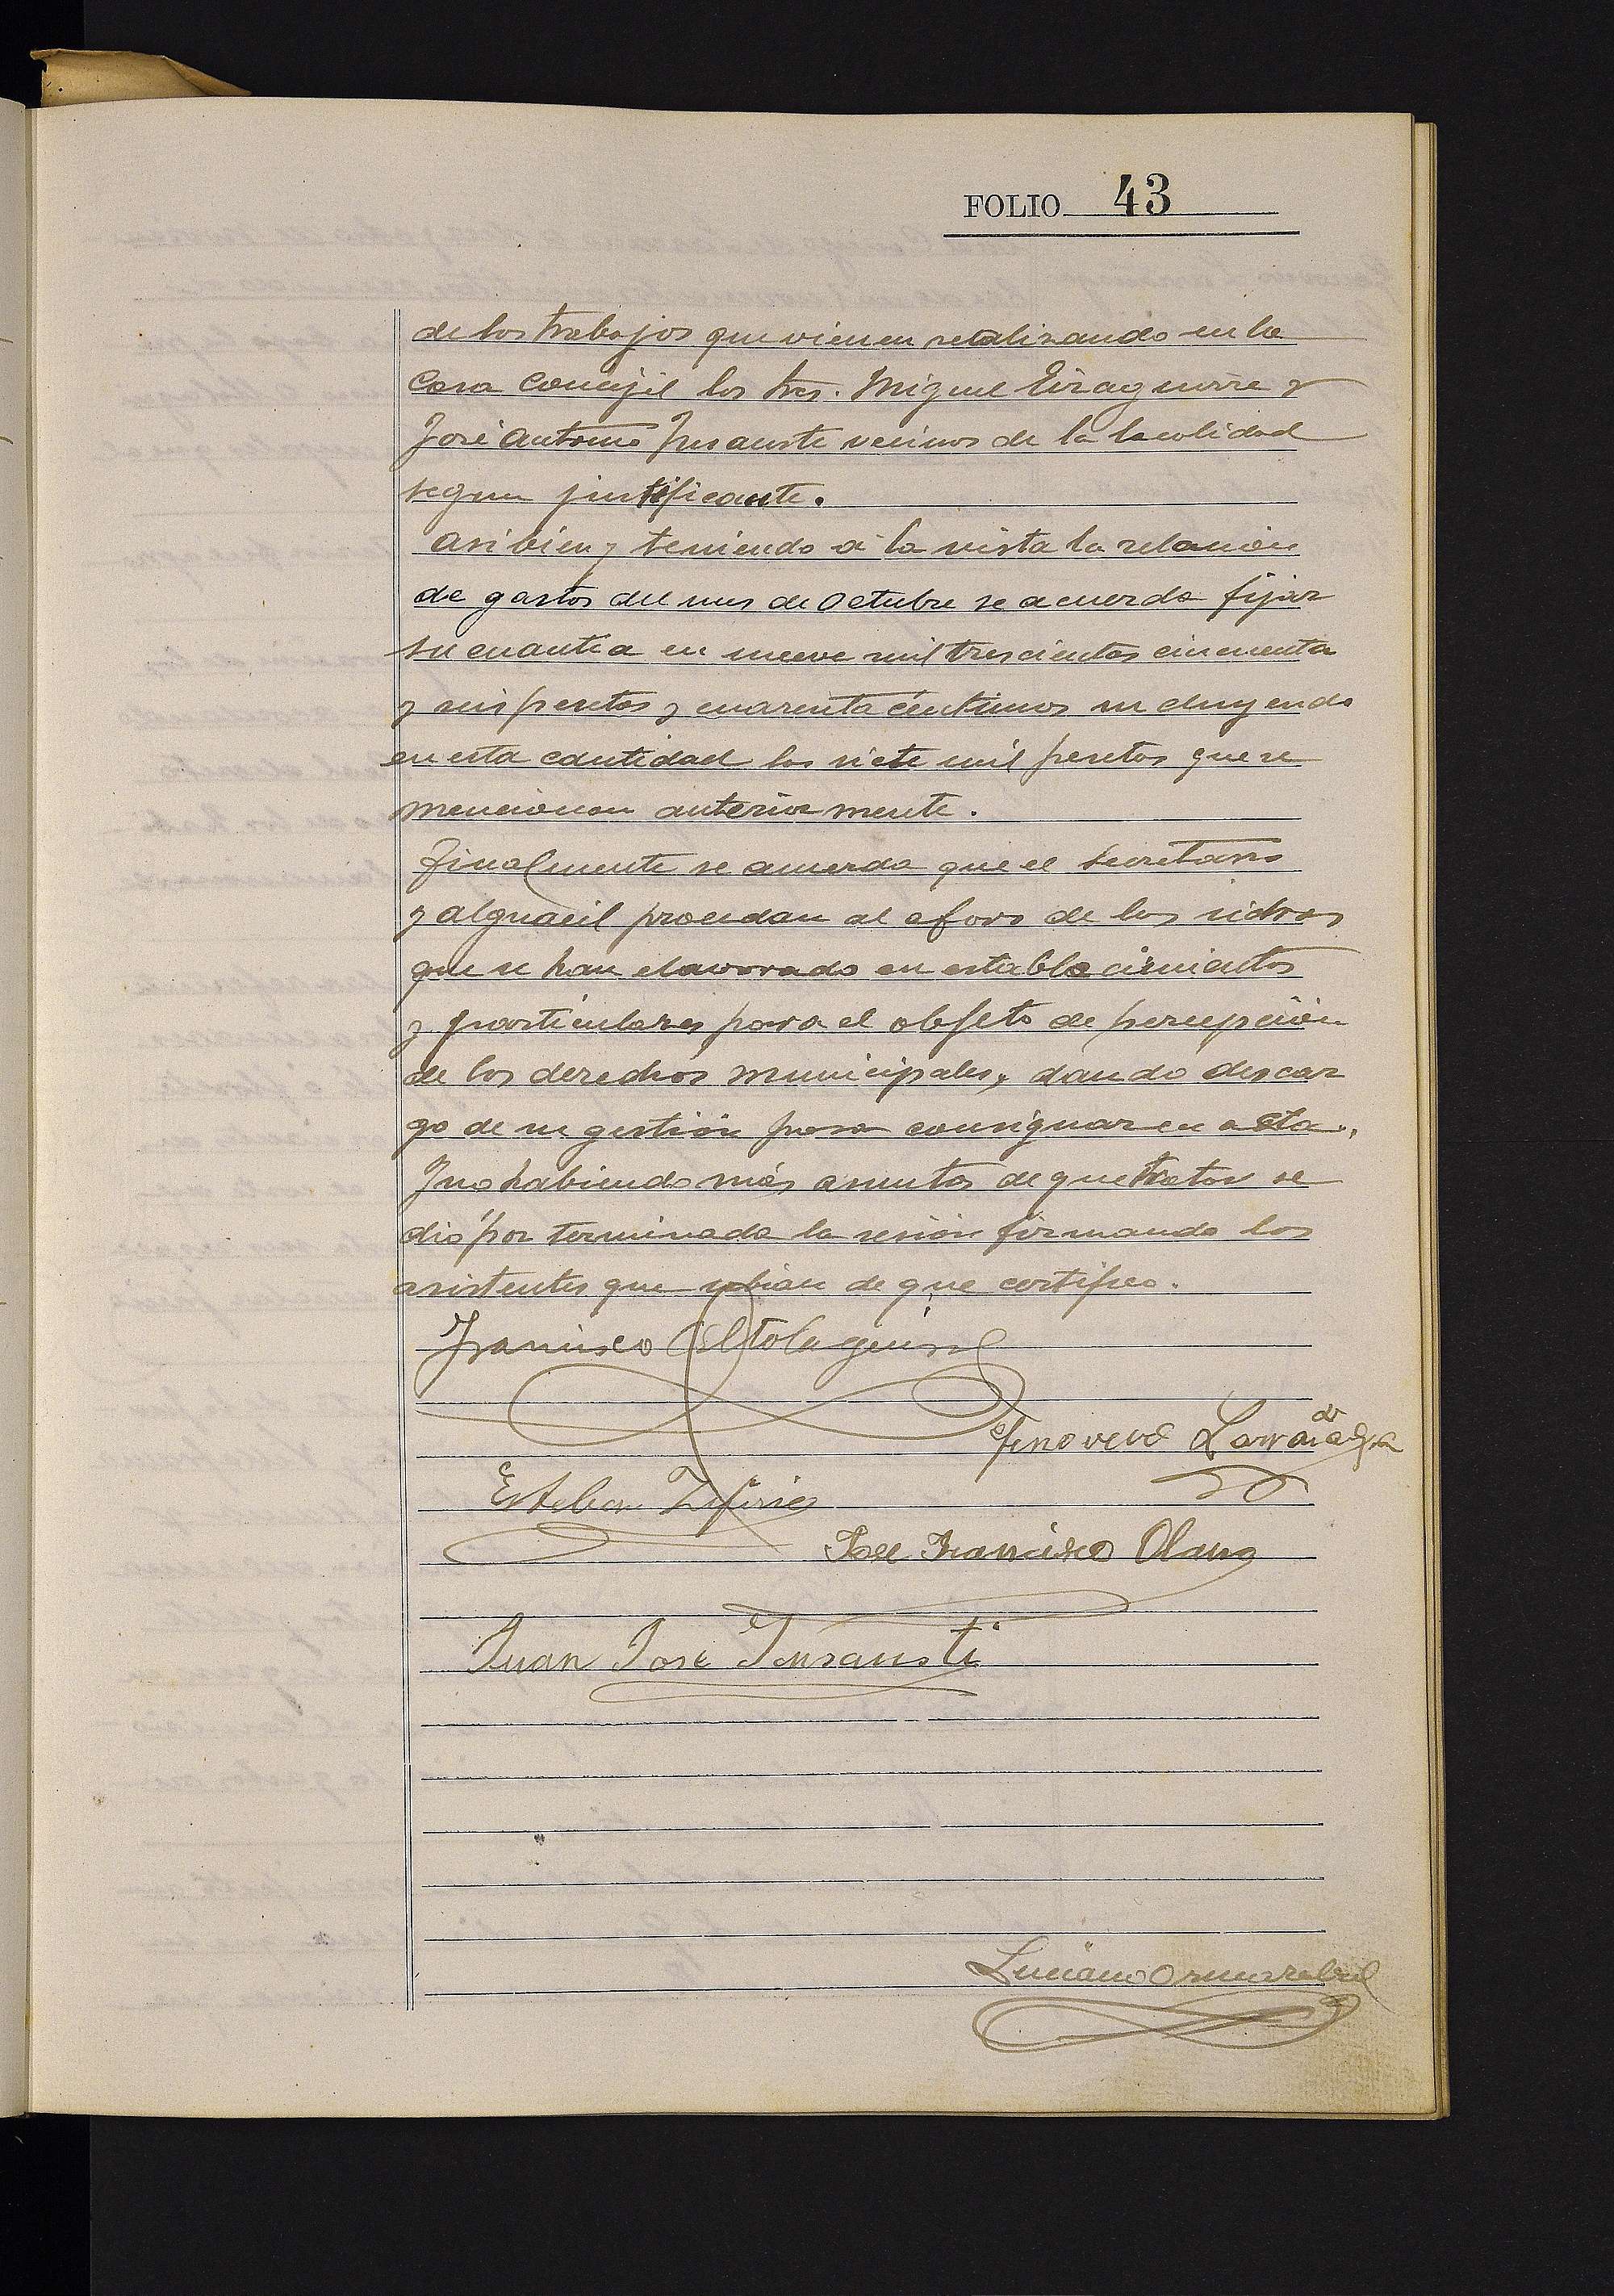 FOLIO 43
de los trabajos que vienen realizando en la
Casa Concejil los tres. Miguel Eizaguirre y
José Antonio Insausti vecinos de la localidad
segun justificante.
Asi bien y teniendo a la vista la relación
de gastos del mes de Octubre se acuerda fijar
su cuantia en nueve mil trescientas cincuenta
y seis pesetas y cuarenta céntimos incluyendo
en esta cantidad las siete mil pesetas que se
mencionan anteriormente.
Finalmente se acuerda que el Secretario
y alguacil procedan al aforo de las sidras
que se han elavorado en establecimientos
y particulares para el objeto de percepción
de los derechos municipales, dando descar
go de su gestión para consignar en acta.
Y no habiendo más asuntos de que tratar se
dió por terminada la sesión firmando los
asistentes que sabian de que certifico.
Francisco Altolaguirre
Genoveva Larrañaga
Esteban
Jose Francisco Olano
Juan José Insausti
Luciano Ormazabal